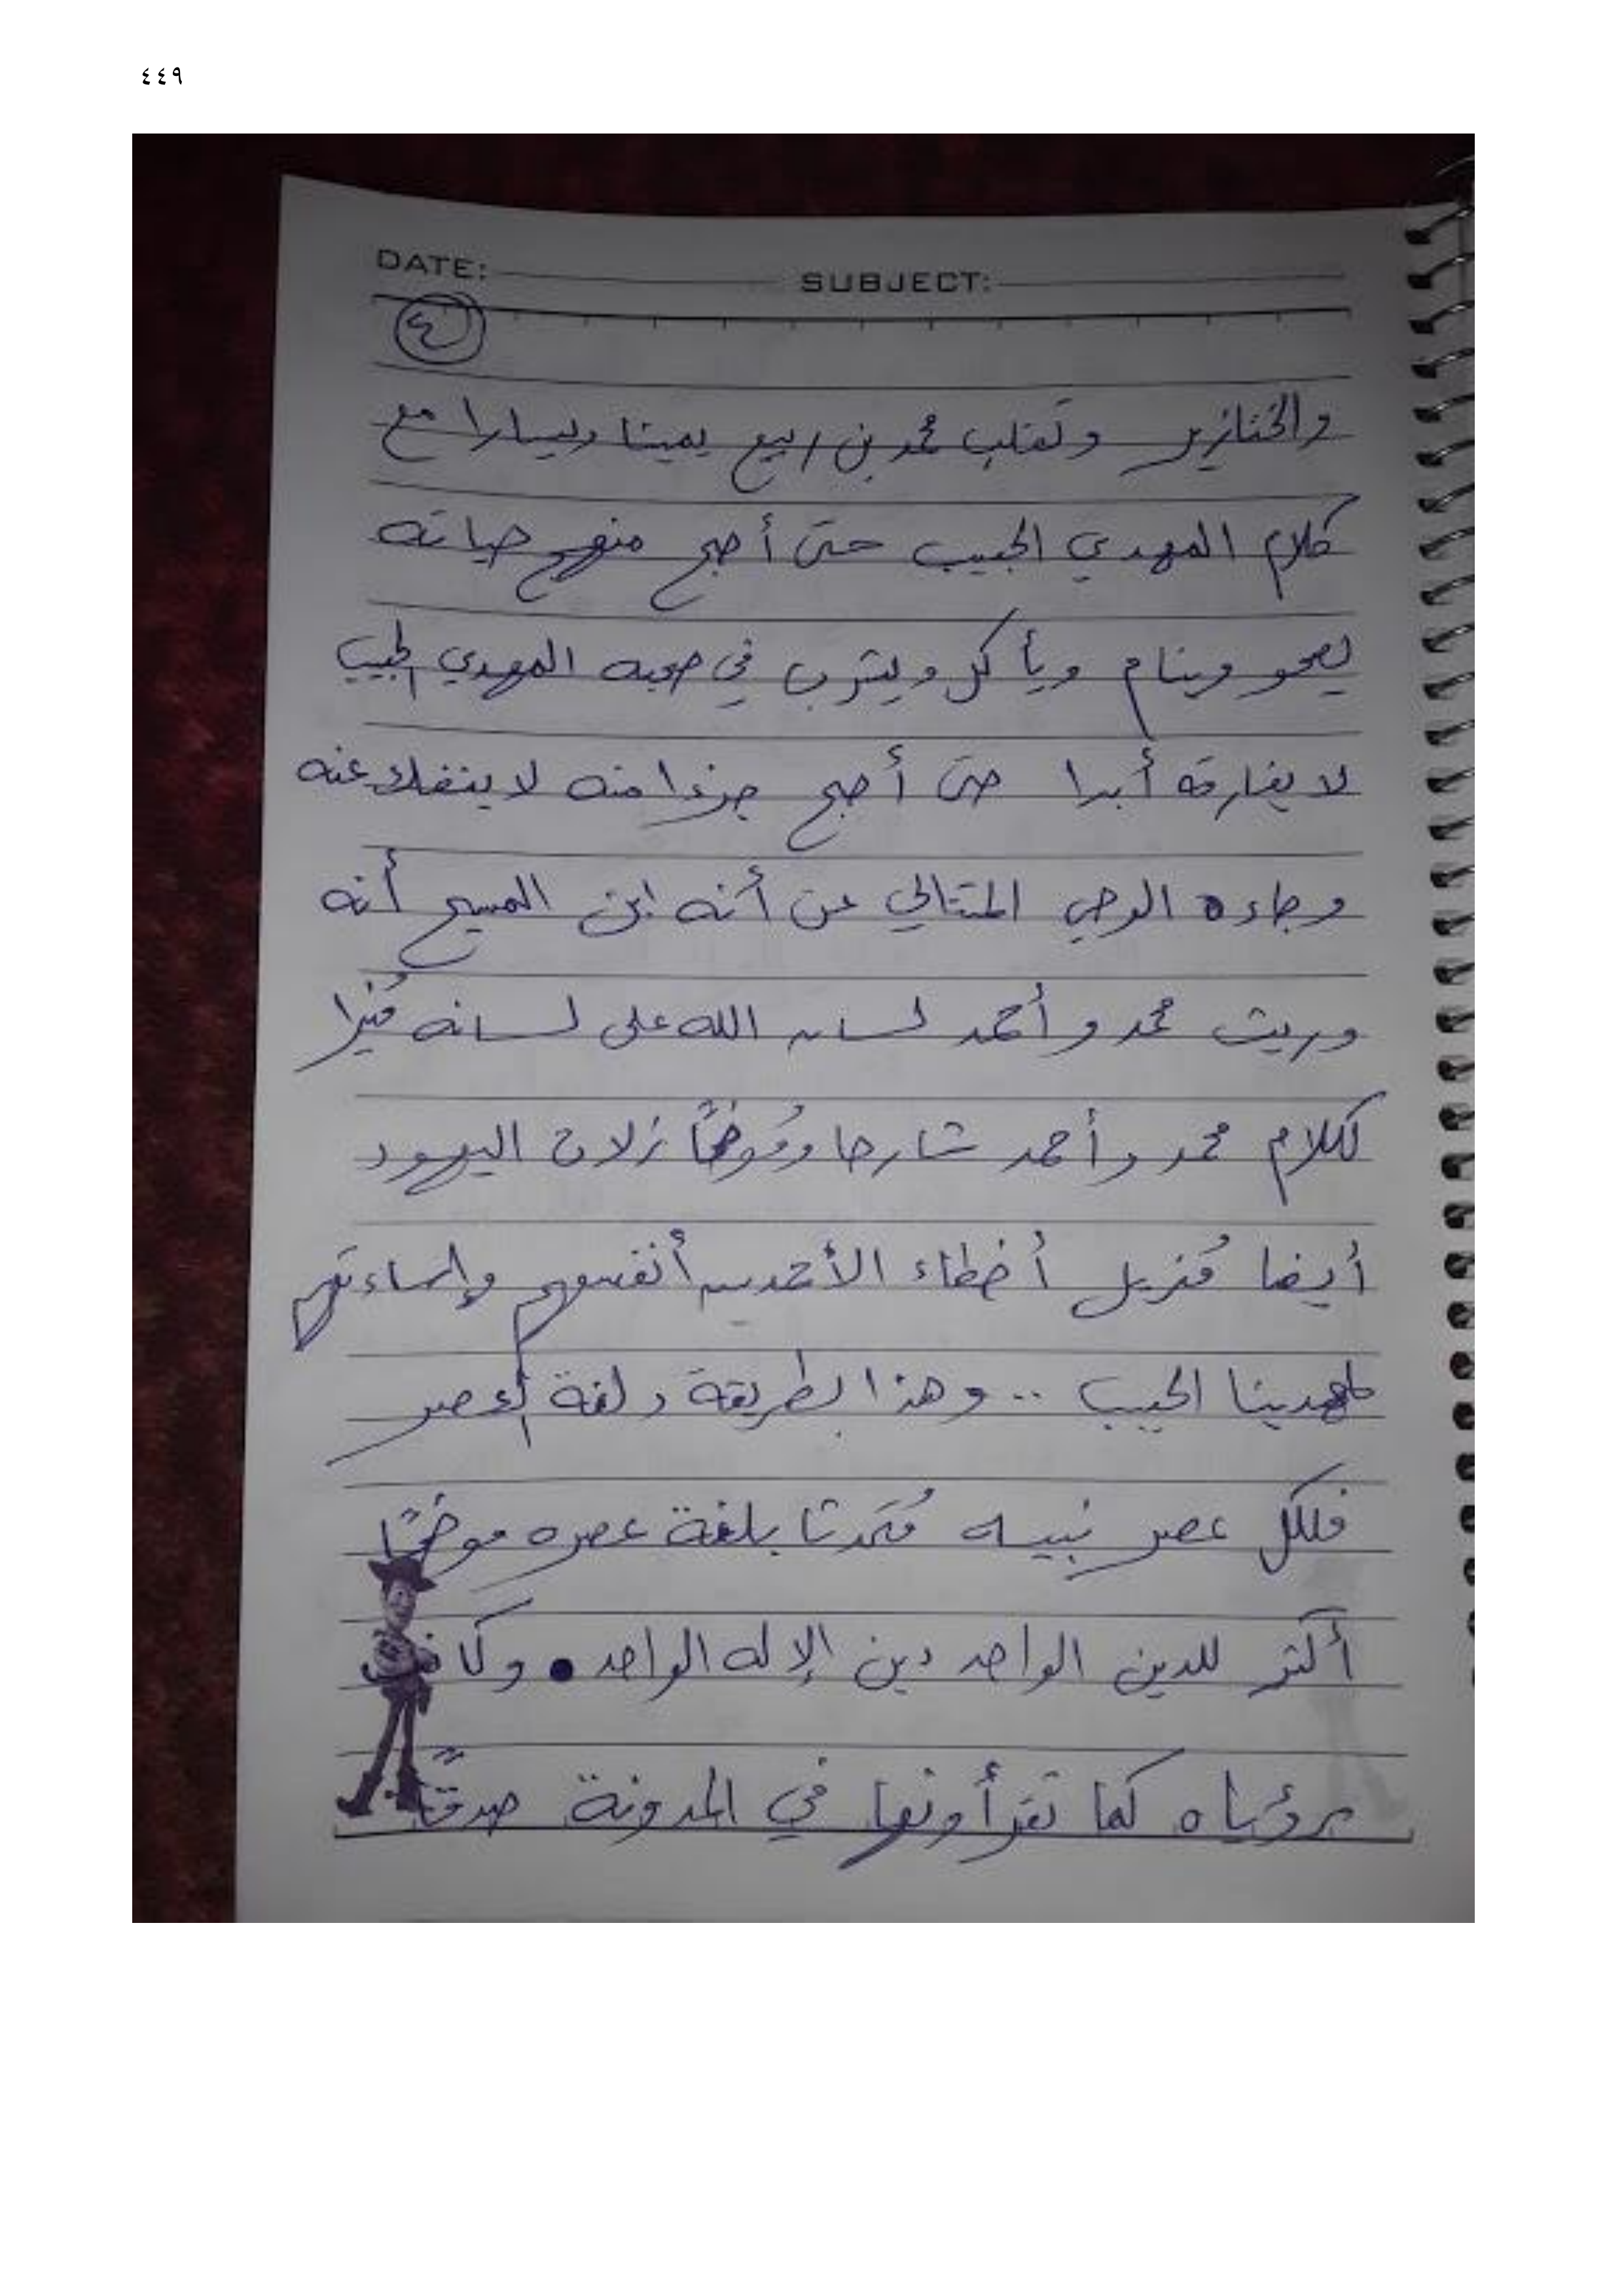 ٤٤٩
DATE: SUBJECT:
٤
والخنازير وتقلب محمد بن ربيع يمينا ويسارا مع
كلام المهدي الحبيب حتى أصبح منهج حياته
يصحو وينام ويأكل ويشرب في صحبه المهدي الحبيب
لا يفارقه أبدا حتى أصبح جزءا منه لا ينفك عنه
وجاءه الوحي المتتالي عن أنه ابن المسيح أنه
وريث محمد وأحمد لسان الله على لسانه
لكلام محمد وأحمد شارحا وموضحًا زلات اليهود
أيضا مُنزيل أخطاء الأحمديين أنفسهم وإساءتهم
لمهدينا الحبيب .. وهذا بطريقة ولغة العصر
فلكل عصر نبيه مُتحدثا بلغة عصره موضحًا
أكثر للدين الواحد دين الإله الواحد . وكانت
رؤياه كما تقرأونها في المدونة صدقًا